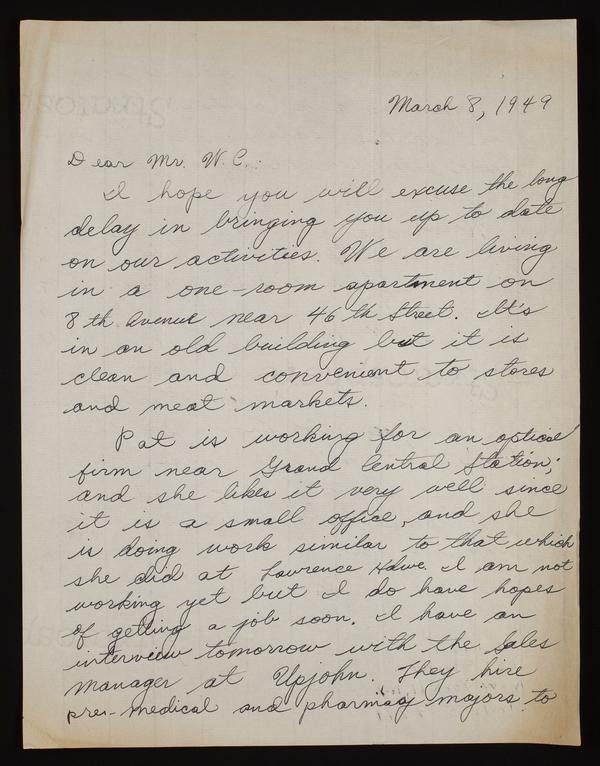 March 8, 1949
Dear Mr. W. C.:
I hope you will excuse the long
delay in bringing you up to date
on our activities. We are living
in a one-room apartment on
8 th Avenue near 46 th Street. It's
in an old building but it is
clean and convenient to stores
and meat markets.
Pat is working for an optical
firm near Grand Central Station,
and she likes it very well since
it is a small office, and she
is doing work similar to that which
she did at Lawrence Howe. I am not
working yet but I do have hopes
of getting a job soon. I have an
interview tomorrow with the Sales
Manager at Upjohn. They hire
pre-medical and pharmacy majors to